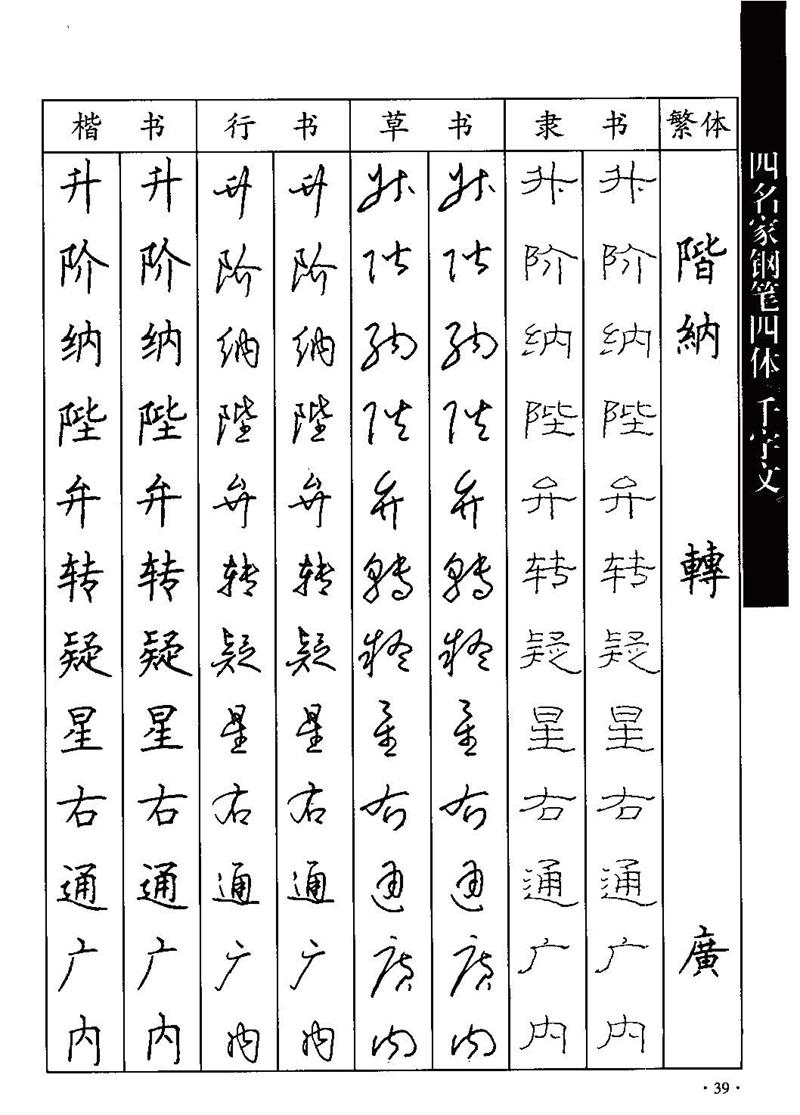 楷 书 行 书 草 书 隶 书 繁体
升 升 升 升 升 升 升 升
阶 阶 阶 阶 阶 阶 阶 阶 階
纳 纳 纳 纳 纳 纳 纳 纳 納
陛 陛 陛 陛 陛 陛 陛 陛
弁 弁 弁 弁 弁 弁 弁 弁
转 转 转 转 轉 轉 转 转 轉
疑 疑 疑 疑 疑 疑 疑 疑
星 星 星 星 星 星 星 星
右 右 右 右 右 右 右 右
通 通 通 通 通 通 通 通
广 广 广 广 廣 廣 广 广 廣
内 内 内 内 内 内 内 内
四名家钢笔四体千字文
·39·